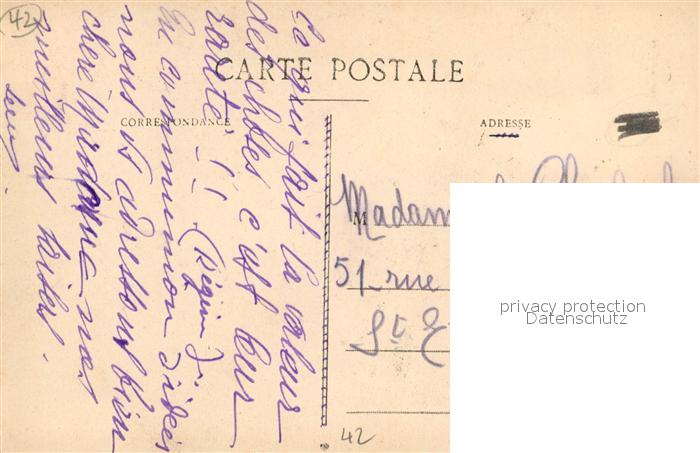 42
CARTE POSTALE
CORRESPONDANCE
ADRESSE
Ce qui fait la valeur
des choses c'est leur
rareté !! (Régina J.
En communion d'idées
nous vs adressons bien
chère Madame nos
meilleurs
M Madam
51 rue
St E
42
privacy protection
Datenschutz